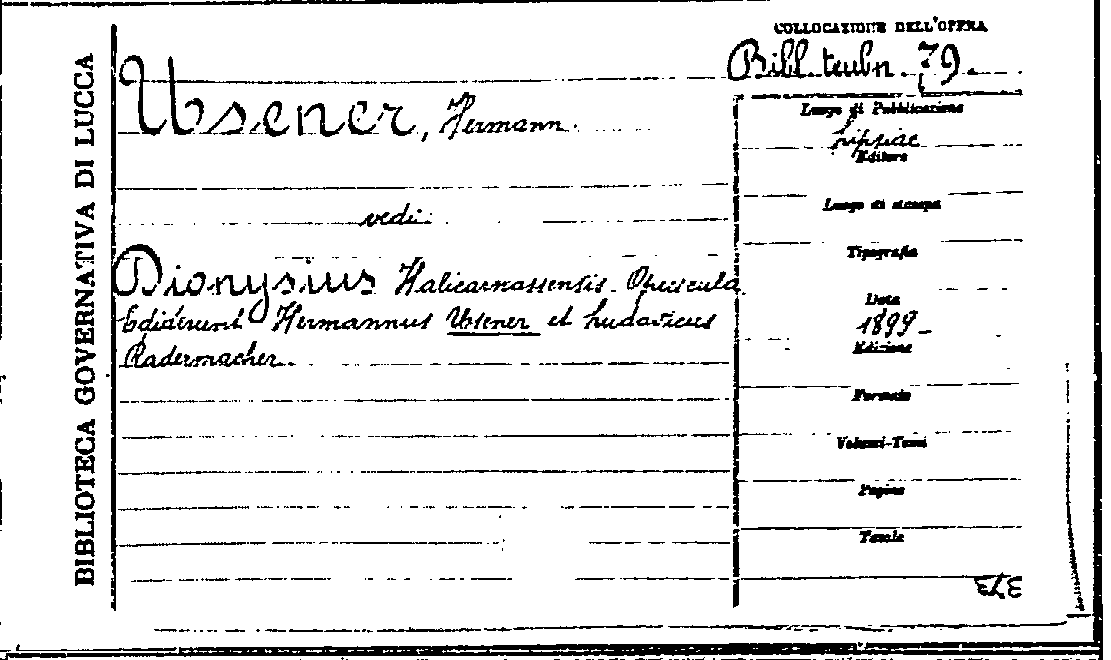 BIBLIOTECA GOVERNATIVA DI LUCCA
COLLOCAZIONE DELL'OPERA
Bibl. teubn. 79.
Usener, Hermann.
vedi
Dionysius Halicarnassensis. Opuscula
Ediderunt Hermannus Usener et Ludovicus
Radermacher.
Luogo di Pubblicazione
Lipsiae
Editore
Luogo di stampa
Tipografia
Data
1899
Edizione
Formato
Volumi-Tomi
Pagine
Tavole